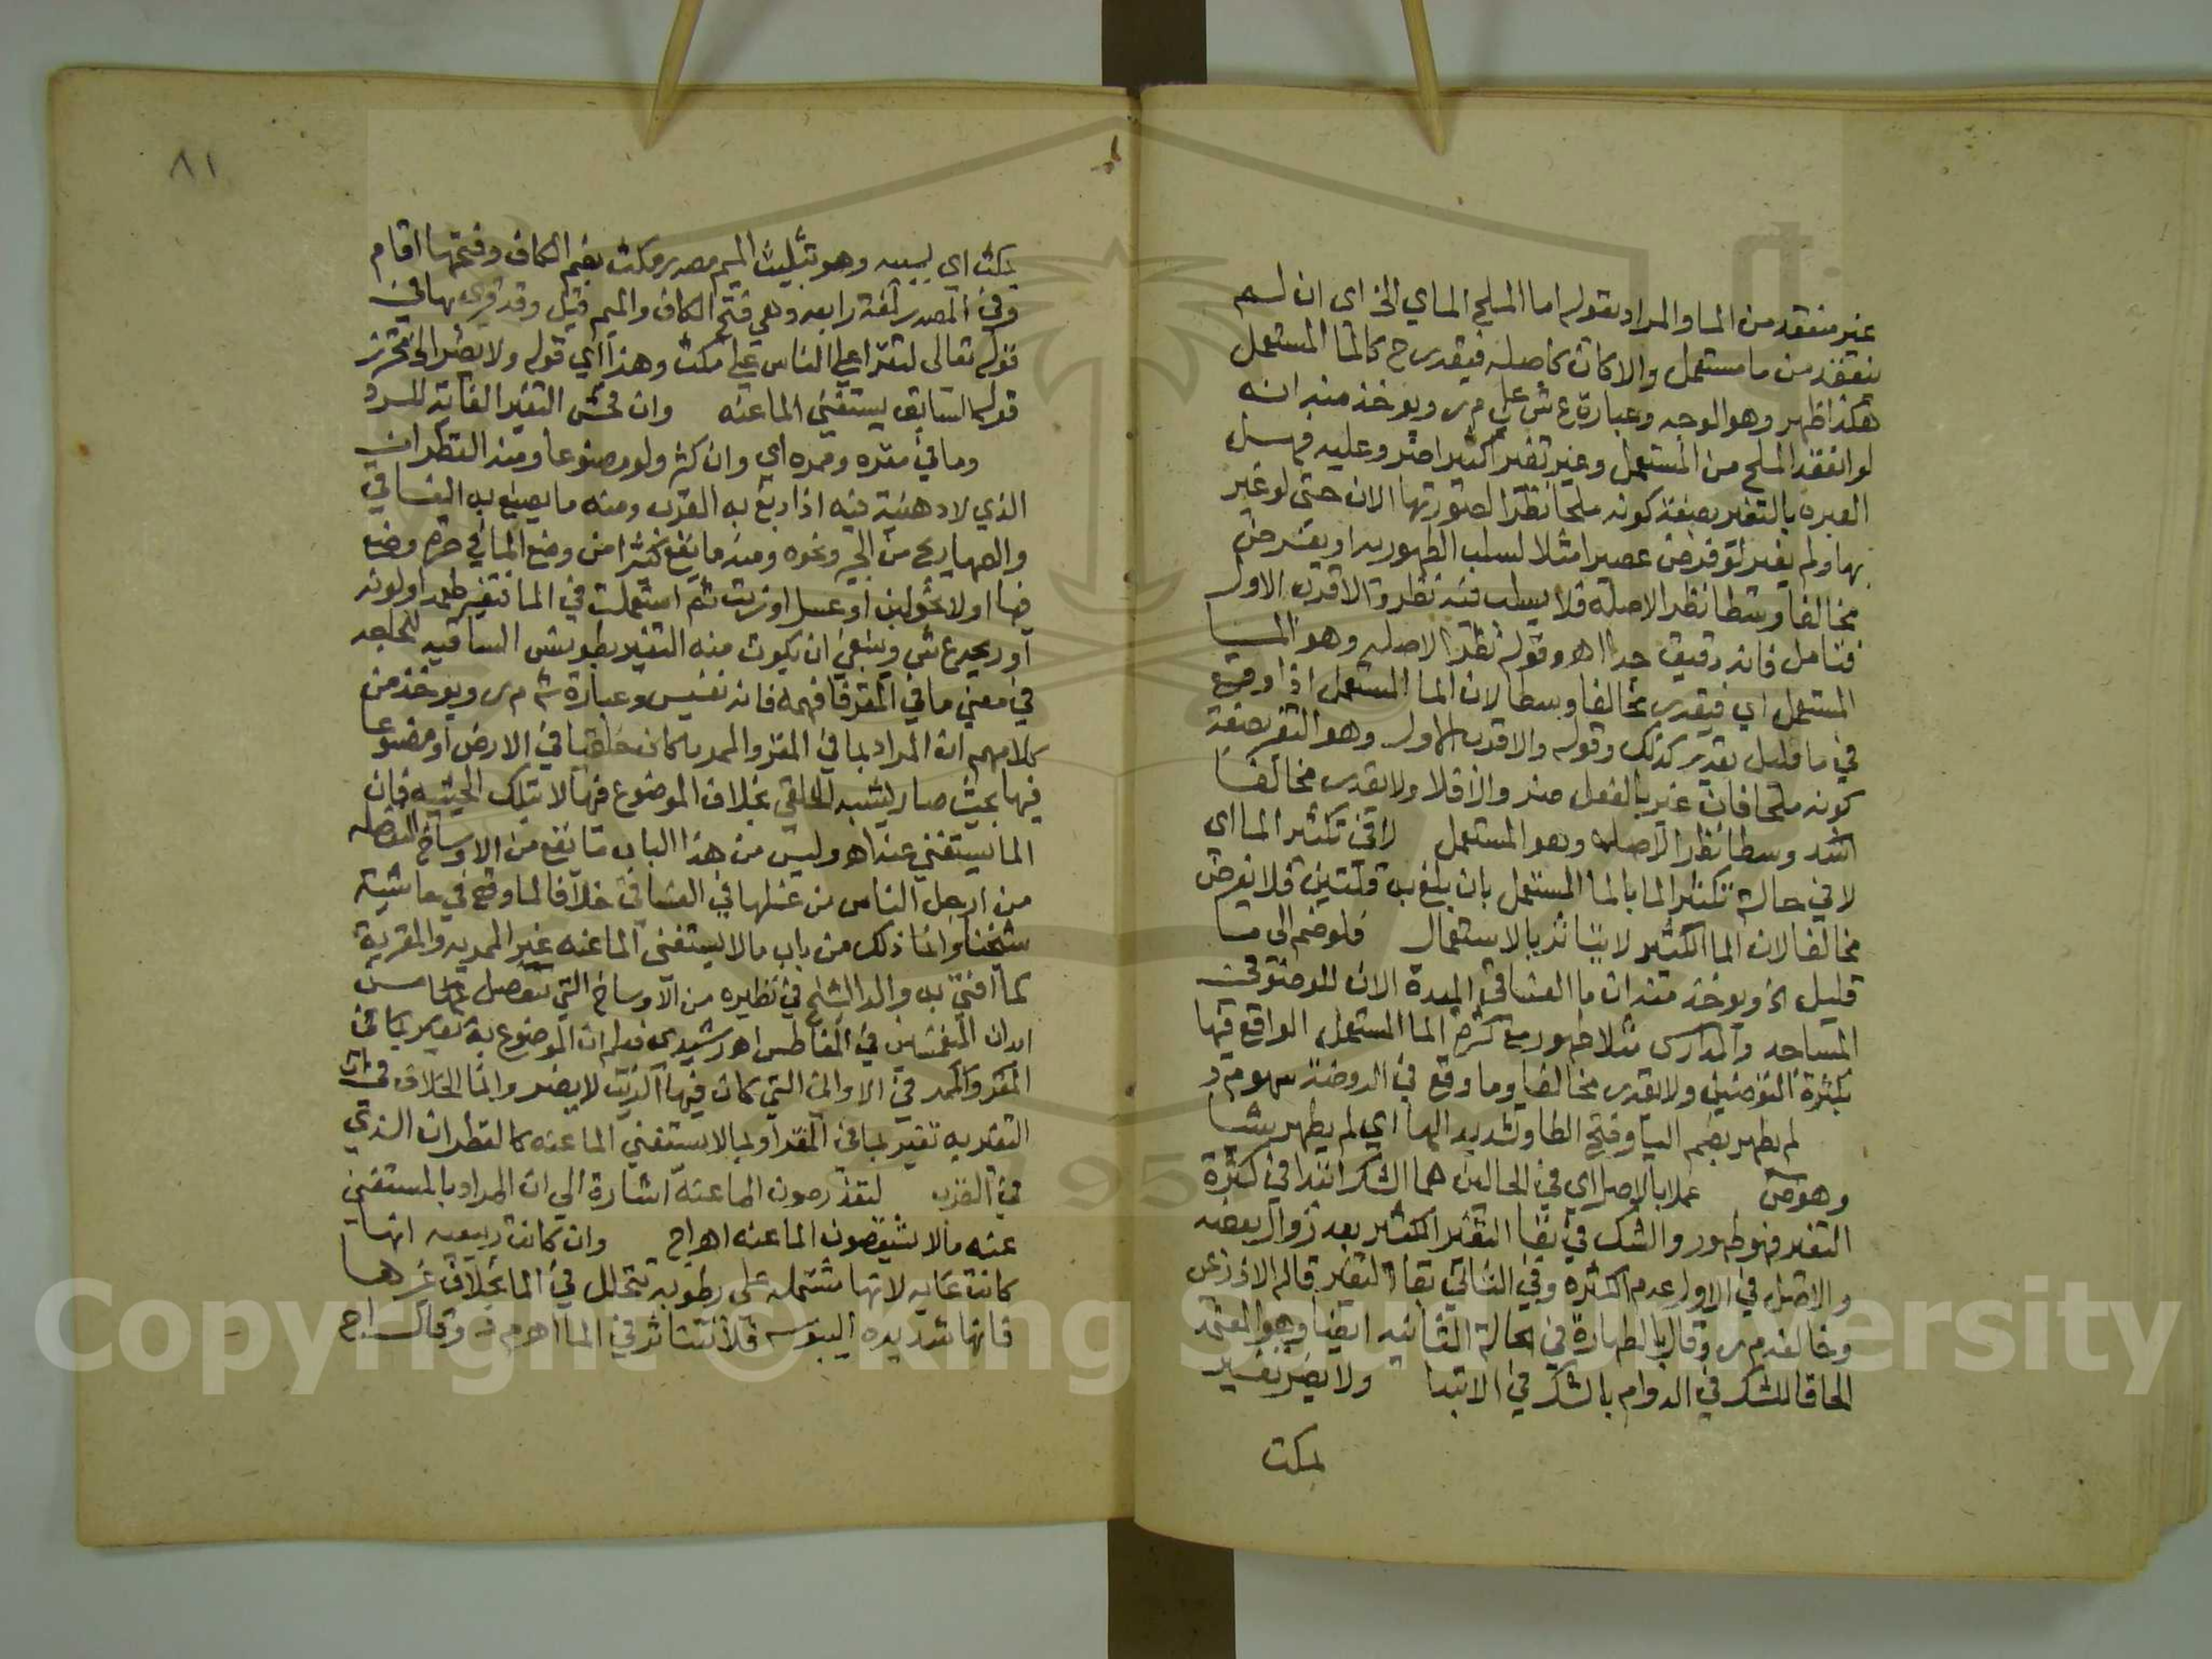 غير منعقد من الما والمراد بقوله اما الملح الماي الخ اي ان لم
ينعقد من ما مستعمل والا كان كاصله فيقدر ح كالما المستعمل
هكذا ظهر وهو الوجه وعبارة ع ش على م ر ويوخذ منه انه
لو انعقد الملح من المستعمل وغير تغيرا كثيرا ضر وعليه فهل
العبره بالتغير بصفة كونه ملحا نظرا لصورتها الان حتى لو غير
بها ولم يغير لو فرض عصيرا مثلا لسلب الطهوريه او يفرض
مخالفا وسطا نظرا لاصله فلا يسلب فيه نظر والاقرب الاول
فتامل فانه دقيق جدا اه وقوله نظرا لاصله وهو الما
المستعمل اي فيقدر مخالفا وسطا لان الما المستعمل اذا وقع
في ما قليل يقدر كذلك وقوله والاقرب الاول وهو التغير بصفة
كونه ملحا فان غير بالفعل ضر والا فلا ولا يقدر مخالفا
اشد وسطا نظرا لاصله وهو المستعمل لا في تكثير الما اي
لا في حالة تكثير الما بالما المستعمل بان بلغ به قلتين فلا يفرض
مخالفا لان الما الكثير لا يتاثر بالاستعمال فلو ضم الى ما
قليل الخ ويوخذ منه ان ما الفساقي المعدة الان للوضو في
المساجد والمدارس مثلا طهور مع كثرة الما المستعمل الواقع فيها
بكثرة المتوضئين ولا يقدر مخالفا وما وقع في الروضة سهو م د
لم يطهر بضم اليا وفتح الطا وتشديد الها اي لم يطهر شيا
وهو عملا بالاصل اي في الحالين هما الشك ابتدا في كثرة
التغير فهو طهور والشك في بقا التغير الكثير بعد زوال بعضه
والاصل في الاول عدم الكثره وفي الثاني بقا التغير قاله الاذرعي
وخالفه م ر وقال بالطهارة في الحالة الثانيه ايضا وهو المعتمد
الحاقا للشك في الدوام بالشك في الابتدا ولا يضر تغير
بمكث
٨١
بمكث اي بسببه وهو بتثليث الميم مصدر مكث بضم الكاف وفتحها اقام
وفي المصدر لغة رابعه وهي فتح الكاف والميم قيل وقد قري بها في
قوله تعالى لتقراه على الناس على مكث وهذا اي قوله ولا يضر الخ محترز
قوله السابق يستغني الما عنه وان فحش التغير الغاية للرد
وما في مقره وممره اي وان كثر ولو مصنوعا ومنه القطران
الذي لا دهنية فيه اذا دبغ به القرب ومنه ما يصنع به الفساقي
والصهاريج من الجير ونحوه ومنه ما يقع كثيرا من وضع الما في جره وضع
فيها اولا نحو لبن او عسل او زيت ثم استعملت في الما فتغير طعمه او لونه
او ريحه ع ش وينبغي ان يكون منه التغير بطونس الساقيه للحاجه
في معنى ما في المقر فافهمه فانه نفيس وعبارة ش م ر ويوخذ من
كلامهم ان المراد بما في المقر والممر ما كان خلقيا في الارض او مصنوعا
فيها بحيث صار يشبه الخلقي بخلاف الموضوع فيها لا بتلك الحيثيه فان
الما يستغني عنه اه وليس من هذا الباب ما يقع من الاوساخ المنفصله
من ارجل الناس من غسلها في الفساقي خلافا لما وقع في حاشية
شيخنا وانما ذلك من باب ما لا يستغني الما عنه غير الممريه والمقرية
كما افتى به والد الشارح في نظيره من الاوساخ التي تنفصل من
ابدان المنغمسين في المغاطس اه رشيدي فعلم ان الموضوع به تغير بما في
المقر والممر في الاواني التي كان فيها الزيت لا يضر وانما الخلاف في ان
التغير به تغير بما في المقر او بما لا يستغني الما عنه كالقطران الذي
في القرب لتعذر صون الما عنه اشارة الى ان المراد بالمستغني
عنه ما لا يشق صون الما عنه اه اج وان كانت ربيعيه انها
كانت غايه لانها مشتمله على رطوبه تتحلل في الما بخلاف غيرها
فانها شديده اليبوسه فلا تتاثر في الما اه م د وقال اج